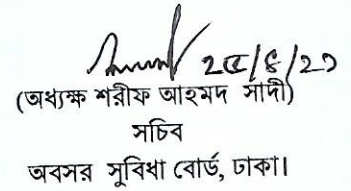 ২৫/৪/২১
(অধ্যক্ষ শরীফ আহমদ সাদী)
সচিব
অবসর সুবিধা বোর্ড, ঢাকা।